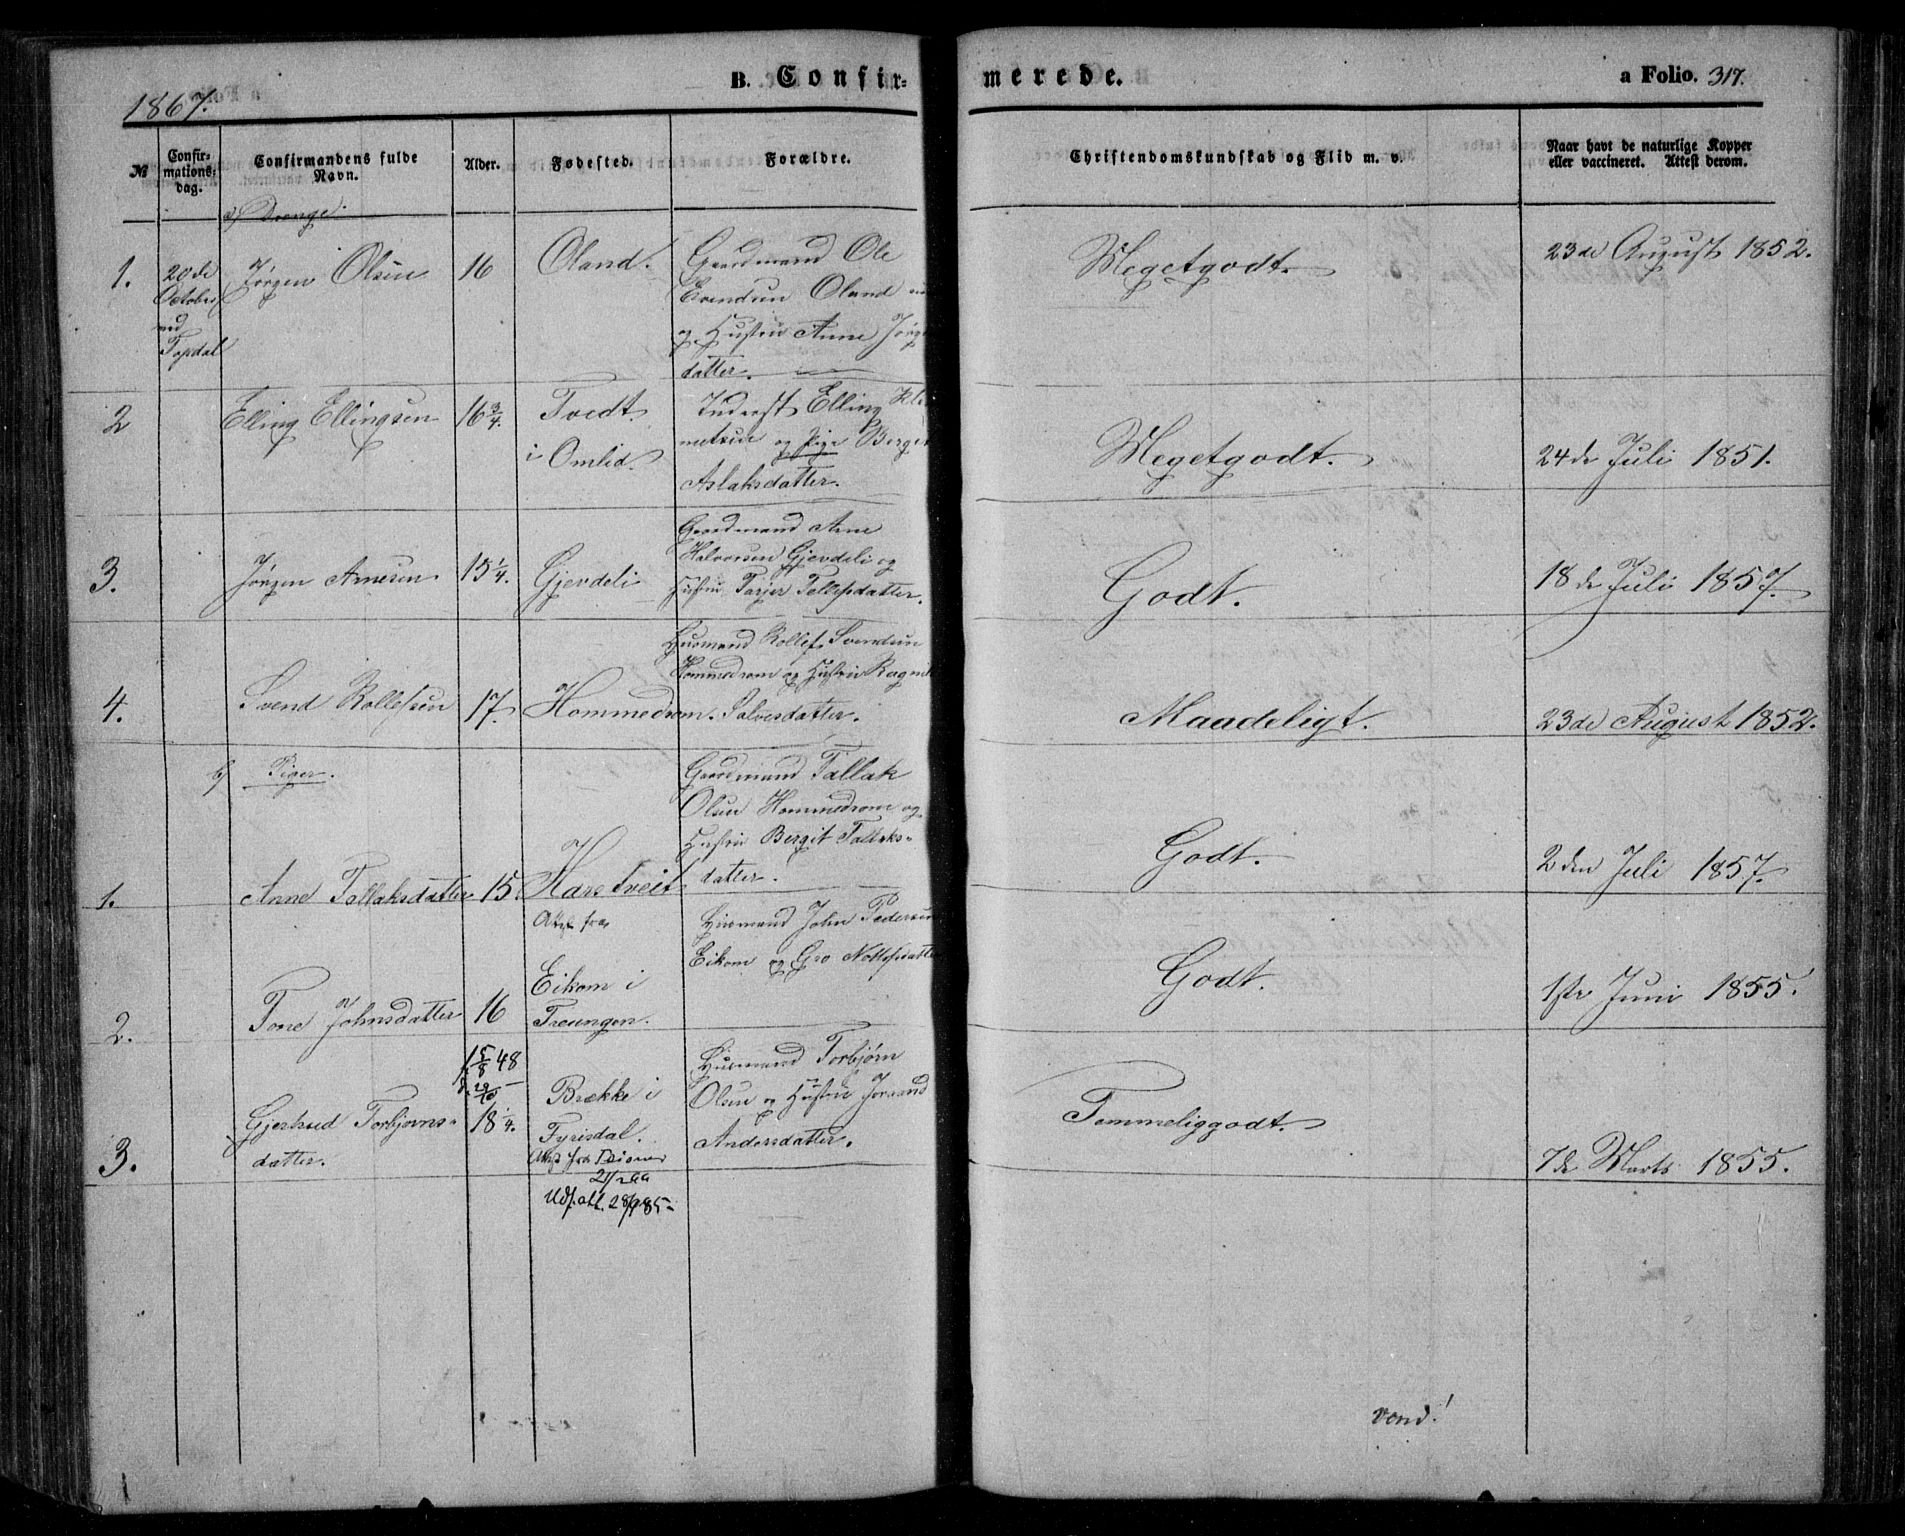 B. Confir-
merede.
a Folio. 317.
1867.
№
Confir-
mations-
dag.
Confirmandens fulde
Navn.
Alder.
Fødested.
Forældre.
Christendomskundskab og Flid m. v.
Naar havt de naturlige Kopper
eller vaccineret. Attest derom.
a) Drenge.
1.
20de
October
ved
Topdal
Jørgen Olsen
16
Oland.
Gaardmand Ole
Evendsen Oland
og Hustru Anne Jørg
datter.
Megetgodt.
23de August 1852.
2
Elling Ellingsen
16 3/4.
Tvedt
i Omlid.
Inderst Elling Kle
metsen og Pige Berget
Aslaksdatter.
Megetgodt.
24de Juli 1851.
3.
Jørgen Arnesen
15 1/4.
Gjevdeli
Gaardmand Arne
Halvorsen Gjevdeli og
Hustru Tarjer Tellefsdatter.
Godt.
18de Juli 1857.
4.
Svend Rollefsen
17.
Hommedrom.
Husmand Rollef Svendsen
Hommedrom og Hustru Ragnil
Salvesdatter.
Maadeligt.
23de August 1852.
b) Piger.
1.
Anne Tallaksdatter
15
Harstveit
Gaardmand Tallak
Olsen Hommedrom og
Hustru Bergit Tallaks-
datter.
Godt.
2den Juli 1857.
2.
Tone Johnsdatter
16
Att fra
Eikom i
Treungen.
Husmand John Pedersen
Eikom og Gro Nottofsdatter
Godt.
1ste Juni 1855.
3.
Gjerhud Torbjørns-
datter.
f. 15/8 48
d. 29/10 -
18 1/4.
Brække i
Fyrisdal.
Att fra
Udf. att. 28/9 85-
Husmand Torbjørn
Olsen og Hustru Joraand
Andersdatter.
Temmeliggodt.
7de Marts 1855.
vend!